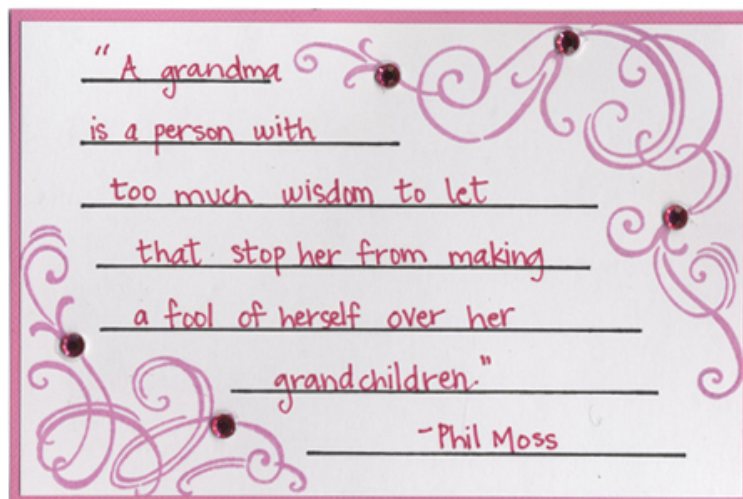 "A grandma
is a person with
too much wisdom to let
that stop her from making
a fool of herself over her
grandchildren."
-Phil Moss